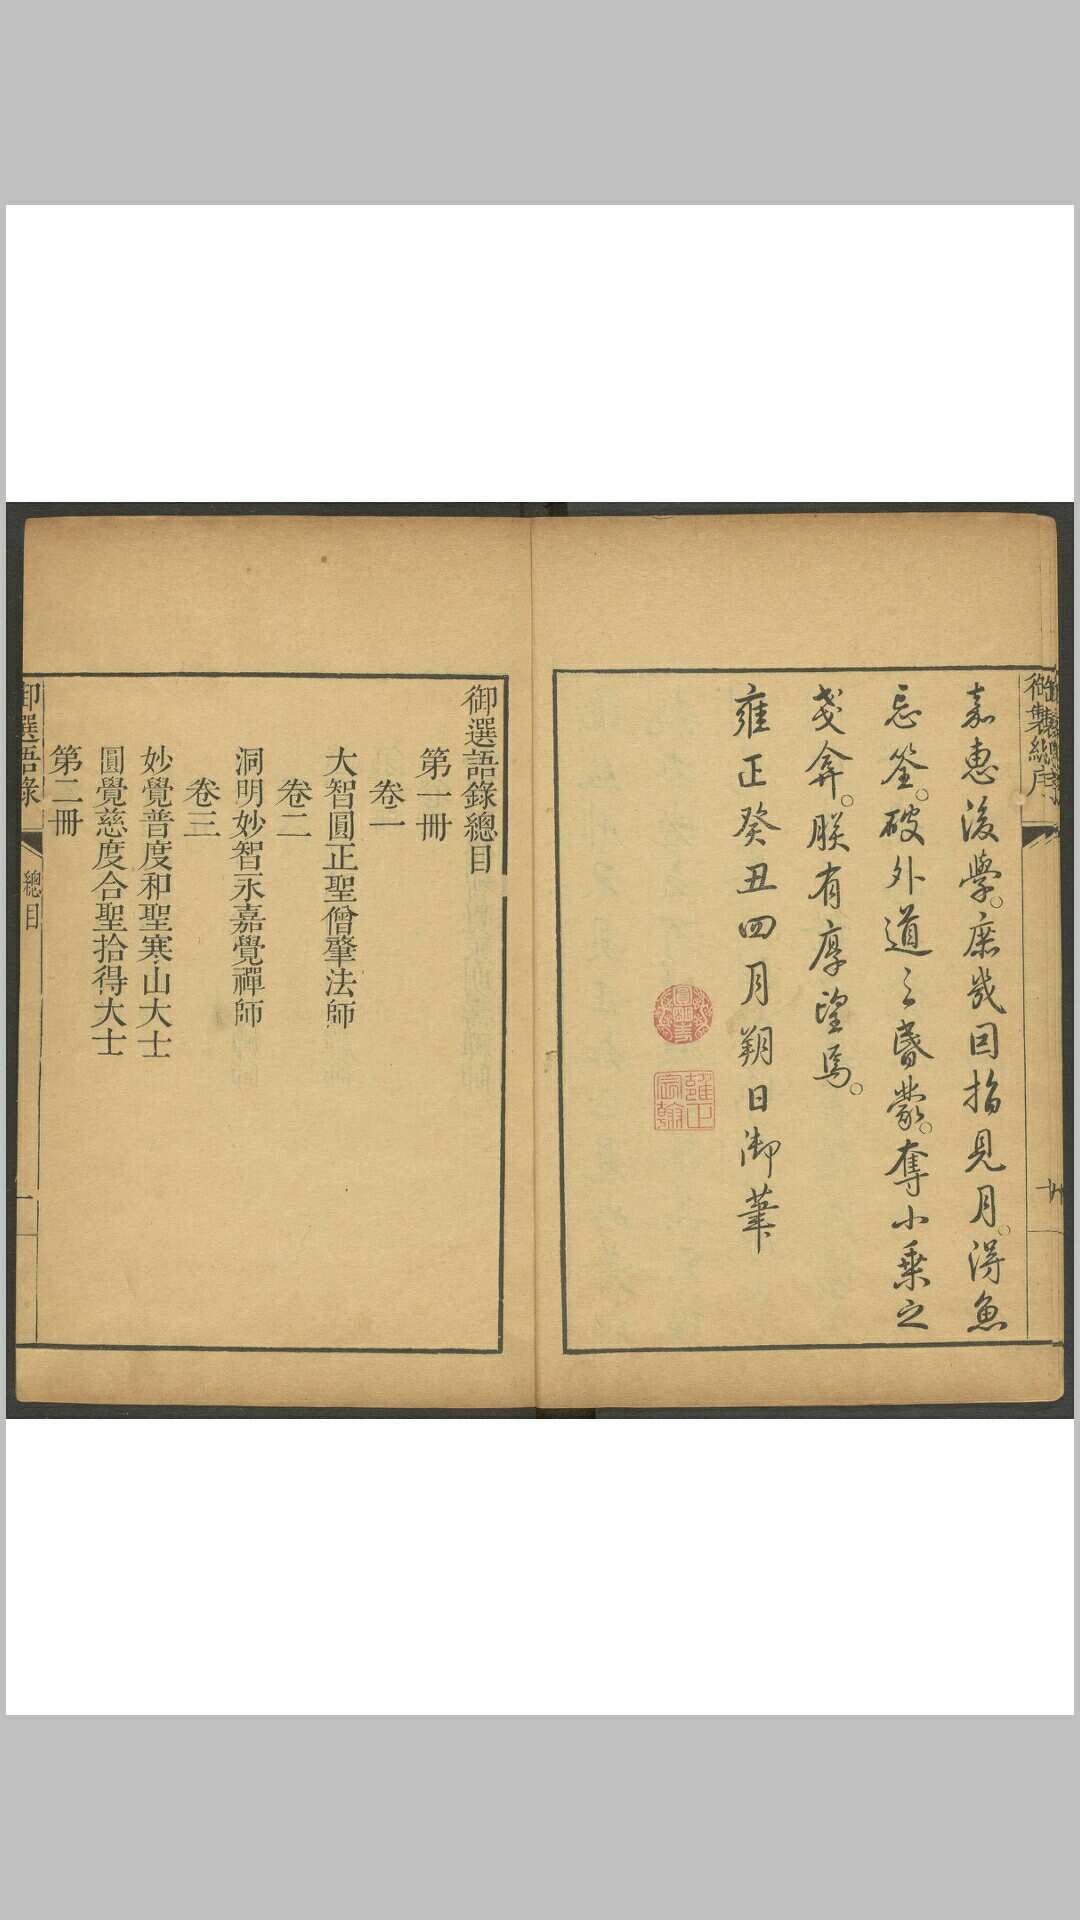 御製總序
嘉惠後學。庶幾因指見月。得魚
忘筌。破外道之昏蒙。奪小乘之
戔弇。朕有厚望焉。
雍正癸丑四月朔日御筆
圓明主人
雍正宸翰
御選語錄總目
第一冊
卷一
大智圓正聖僧肇法師
卷二
洞明妙智永嘉覺禪師
卷三
妙覺普度和聖寒山大士
圓覺慈度合聖拾得大士
第二冊
御選語錄
總目
一